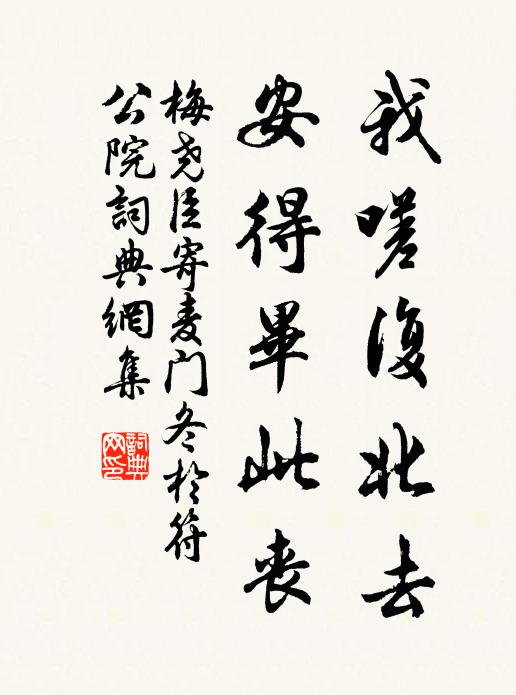 我嗟復北去
安得畢此喪
梅堯臣寄麦门冬於符
公院詞典網集
詞典网印